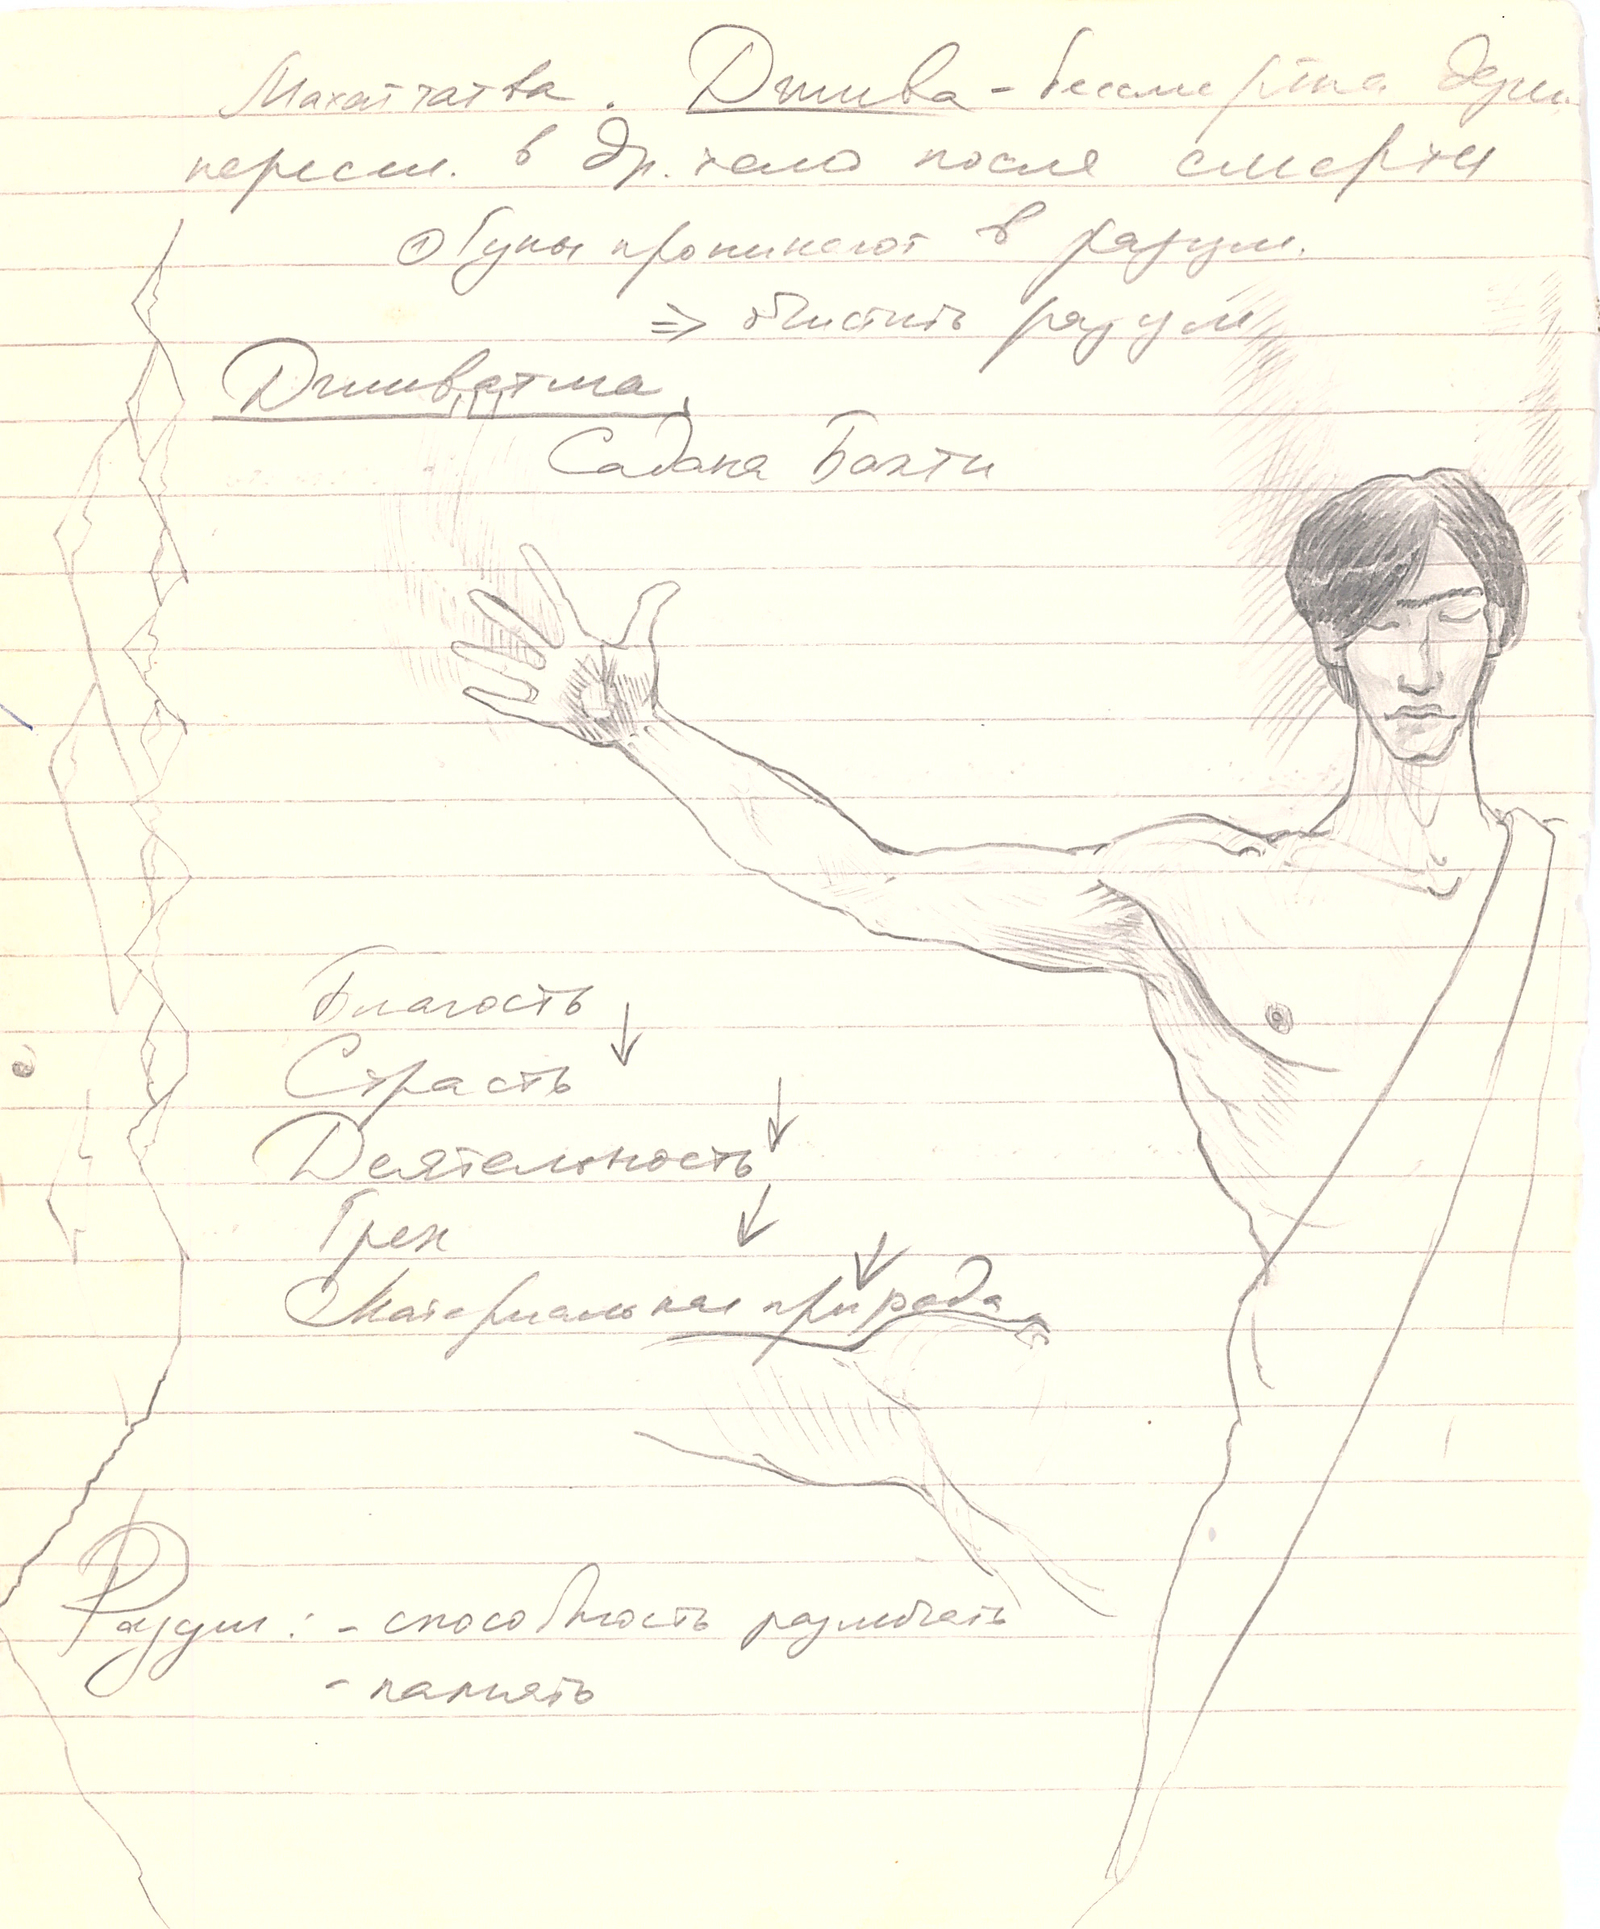 Махаттатва. Джива - бессмертна душа
пересел. в др. тело после смерти
① Гуны проникают в разум.
⇒ очистить разум
Дживатма
Садана Бакти
Благость ↓
Страсть ↓
Деятельность ↓
Грех ↓
Материальная природа
Разум: - способность различать
- память